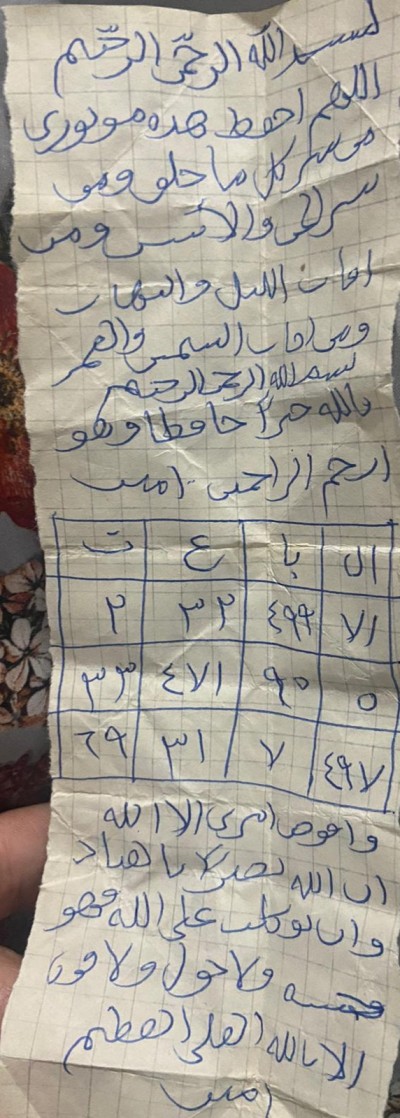 بسم الله الرحمن الرحيم
اللهم احفظ هذه موتوری
من شر كل ما خلق ومن
شر الجن والانس ومن
افات الليل والنهار
ومن افات الشمس والقمر
بسم الله الرحمن الرحيم
بالله خيرا حافظا وهو
ارحم الراحمين امين
ال با ع ث
١٧ ٤٩٩ ٣٢ ٢
٥ ٩٥ ٤٧١ ٣٣
٤٩٧ ٧ ٣١ ٦٩
وافوض امري الا الله
ان الله بصير با لعباد
وان توكلت على الله فهو
حسبه ولا حول ولا قوة
الا بالله العلي العظيم
امين